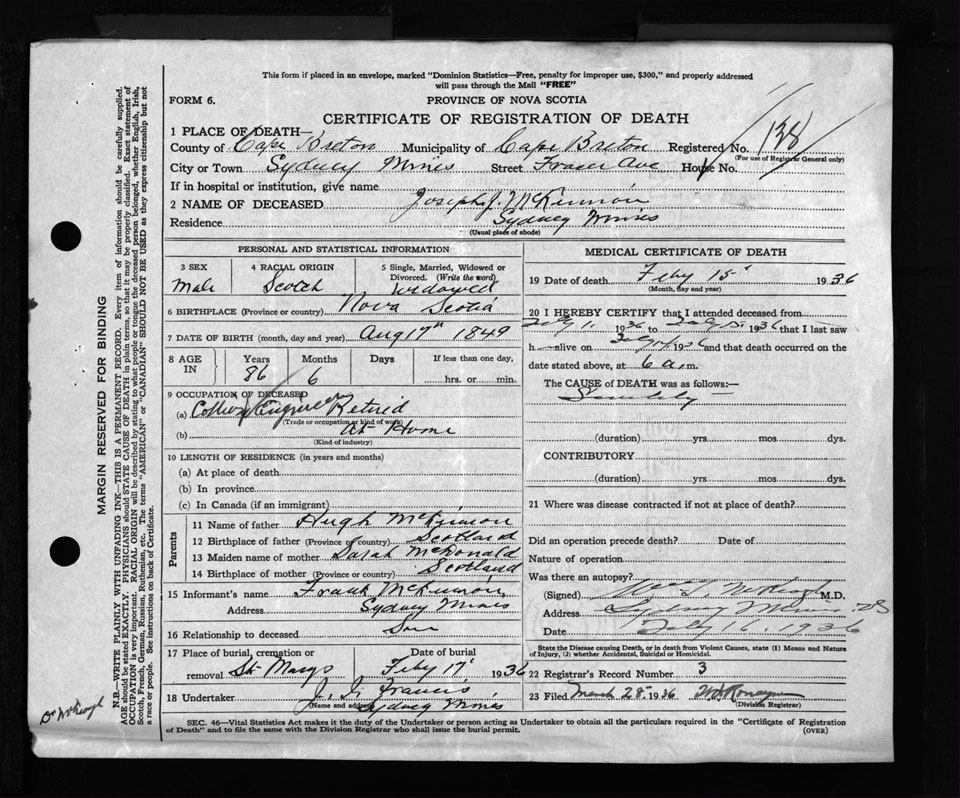 This form if placed in an envelope, marked "Dominion Statistics—Free, penalty for improper use, $300," and properly addressed
will pass through the Mail "FREE"
FORM 6.
PROVINCE OF NOVA SCOTIA
CERTIFICATE OF REGISTRATION OF DEATH
1 PLACE OF DEATH—
County of Cape Breton Municipality of Cape Breton Registered No. 138
(For use of Registrar General only)
City or Town Sydney Mines Street Fraser Ave House No.
If in hospital or institution, give name
2 NAME OF DECEASED Joseph J. McKinnon
Residence Sydney Mines
(Usual place of abode)
PERSONAL AND STATISTICAL INFORMATION
3 SEX
Male
4 RACIAL ORIGIN
Scotch
5 Single, Married, Widowed or
Divorced. (Write the word)
Widowed
6 BIRTHPLACE (Province or country) Nova Scotia
7 DATE OF BIRTH (month, day and year) Aug 17th 1849
8 AGE
IN
Years
86
Months
6
Days
If less than one day,
hrs. or min.
9 OCCUPATION OF DECEASED
(a) Colliery Engineer Retired
(Trade or occupation or kind of work)
(b) At Home
(Kind of industry)
10 LENGTH OF RESIDENCE (in years and months)
(a) At place of death
(b) In province
(c) In Canada (if an immigrant)
Parents
11 Name of father Hugh McKinnon
12 Birthplace of father (Province or country) Scotland
13 Maiden name of mother Sarah McDonald
14 Birthplace of mother (Province or country) Scotland
15 Informant's name Frank McKinnon
Address Sydney Mines
16 Relationship to deceased Son
17 Place of burial, cremation or
removal St. Marys
Date of burial
Feby 17 1936
18 Undertaker J. J. Francis
(Name and address) Sydney Mines
MEDICAL CERTIFICATE OF DEATH
19 Date of death Feby 15 1936
(Month, day and year)
20 I HEREBY CERTIFY that I attended deceased from
Feby 1, 1936 to Feby 15 1936 that I last saw
h alive on 1936 and that death occurred on the
date stated above, at 6 a.m.
The CAUSE of DEATH was as follows:—
Senility
(duration) yrs mos dys.
CONTRIBUTORY
(duration) yrs mos dys.
21 Where was disease contracted if not at place of death?
Did an operation precede death? Date of
Nature of operation
Was there an autopsy?
(Signed) McKeogh M.D.
Address Sydney Mines NS
Date Feby 16, 1936
State the Disease causing Death, or in death from Violent Causes, state (1) Means and Nature
of Injury, (2) whether Accidental, Suicidal or Homicidal.
22 Registrar's Record Number 3
23 Filed March 28 1936
(Division Registrar)
SEC. 46—Vital Statistics Act makes it the duty of the Undertaker or person acting as Undertaker to obtain all the particulars required in the "Certificate of Registration
of Death" and to file the same with the Division Registrar who shall issue the burial permit.
(OVER)
MARGIN RESERVED FOR BINDING
N.B.—WRITE PLAINLY WITH UNFADING INK—THIS IS A PERMANENT RECORD. Every item of information should be carefully supplied.
AGE should be stated EXACTLY. PHYSICIANS should STATE CAUSE OF DEATH in plain terms, so that it may be properly classified. Exact statement of
OCCUPATION is very important. RACIAL ORIGIN will be described by stating to what people or tongue the deceased person belonged, whether English, Irish,
Scotch, French, German, Russian, Ruthenian, etc. The terms "AMERICAN" or "CANADIAN" SHOULD NOT BE USED as they express citizenship but not
a race or people. See instructions on back of Certificate.
Dr McKeogh